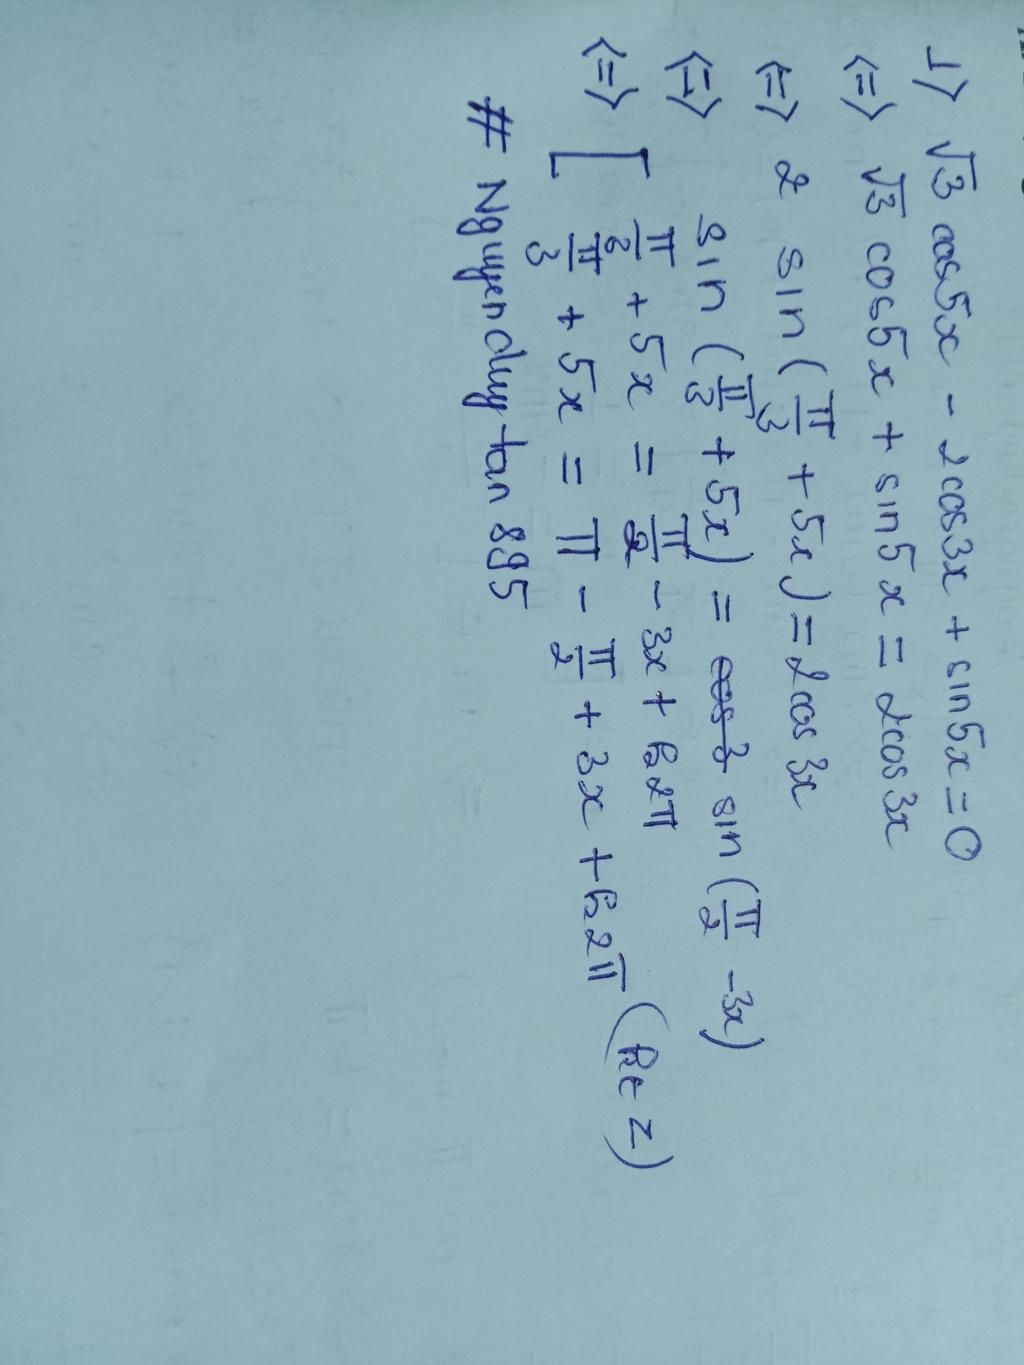 1) √3 cos5x - 2cos3x + sin5x = 0
<=> √3 cos5x + sin5x = 2cos3x
<=> 2 sin(π/3 + 5x) = 2cos3x
<=> sin(π/3 + 5x) = sin(π/2 - 3x)
<=> [ π/3 + 5x = π/2 - 3x + k2π
π/3 + 5x = π - π/2 + 3x + k2π (k ∈ Z)
# Nguyenduytan895